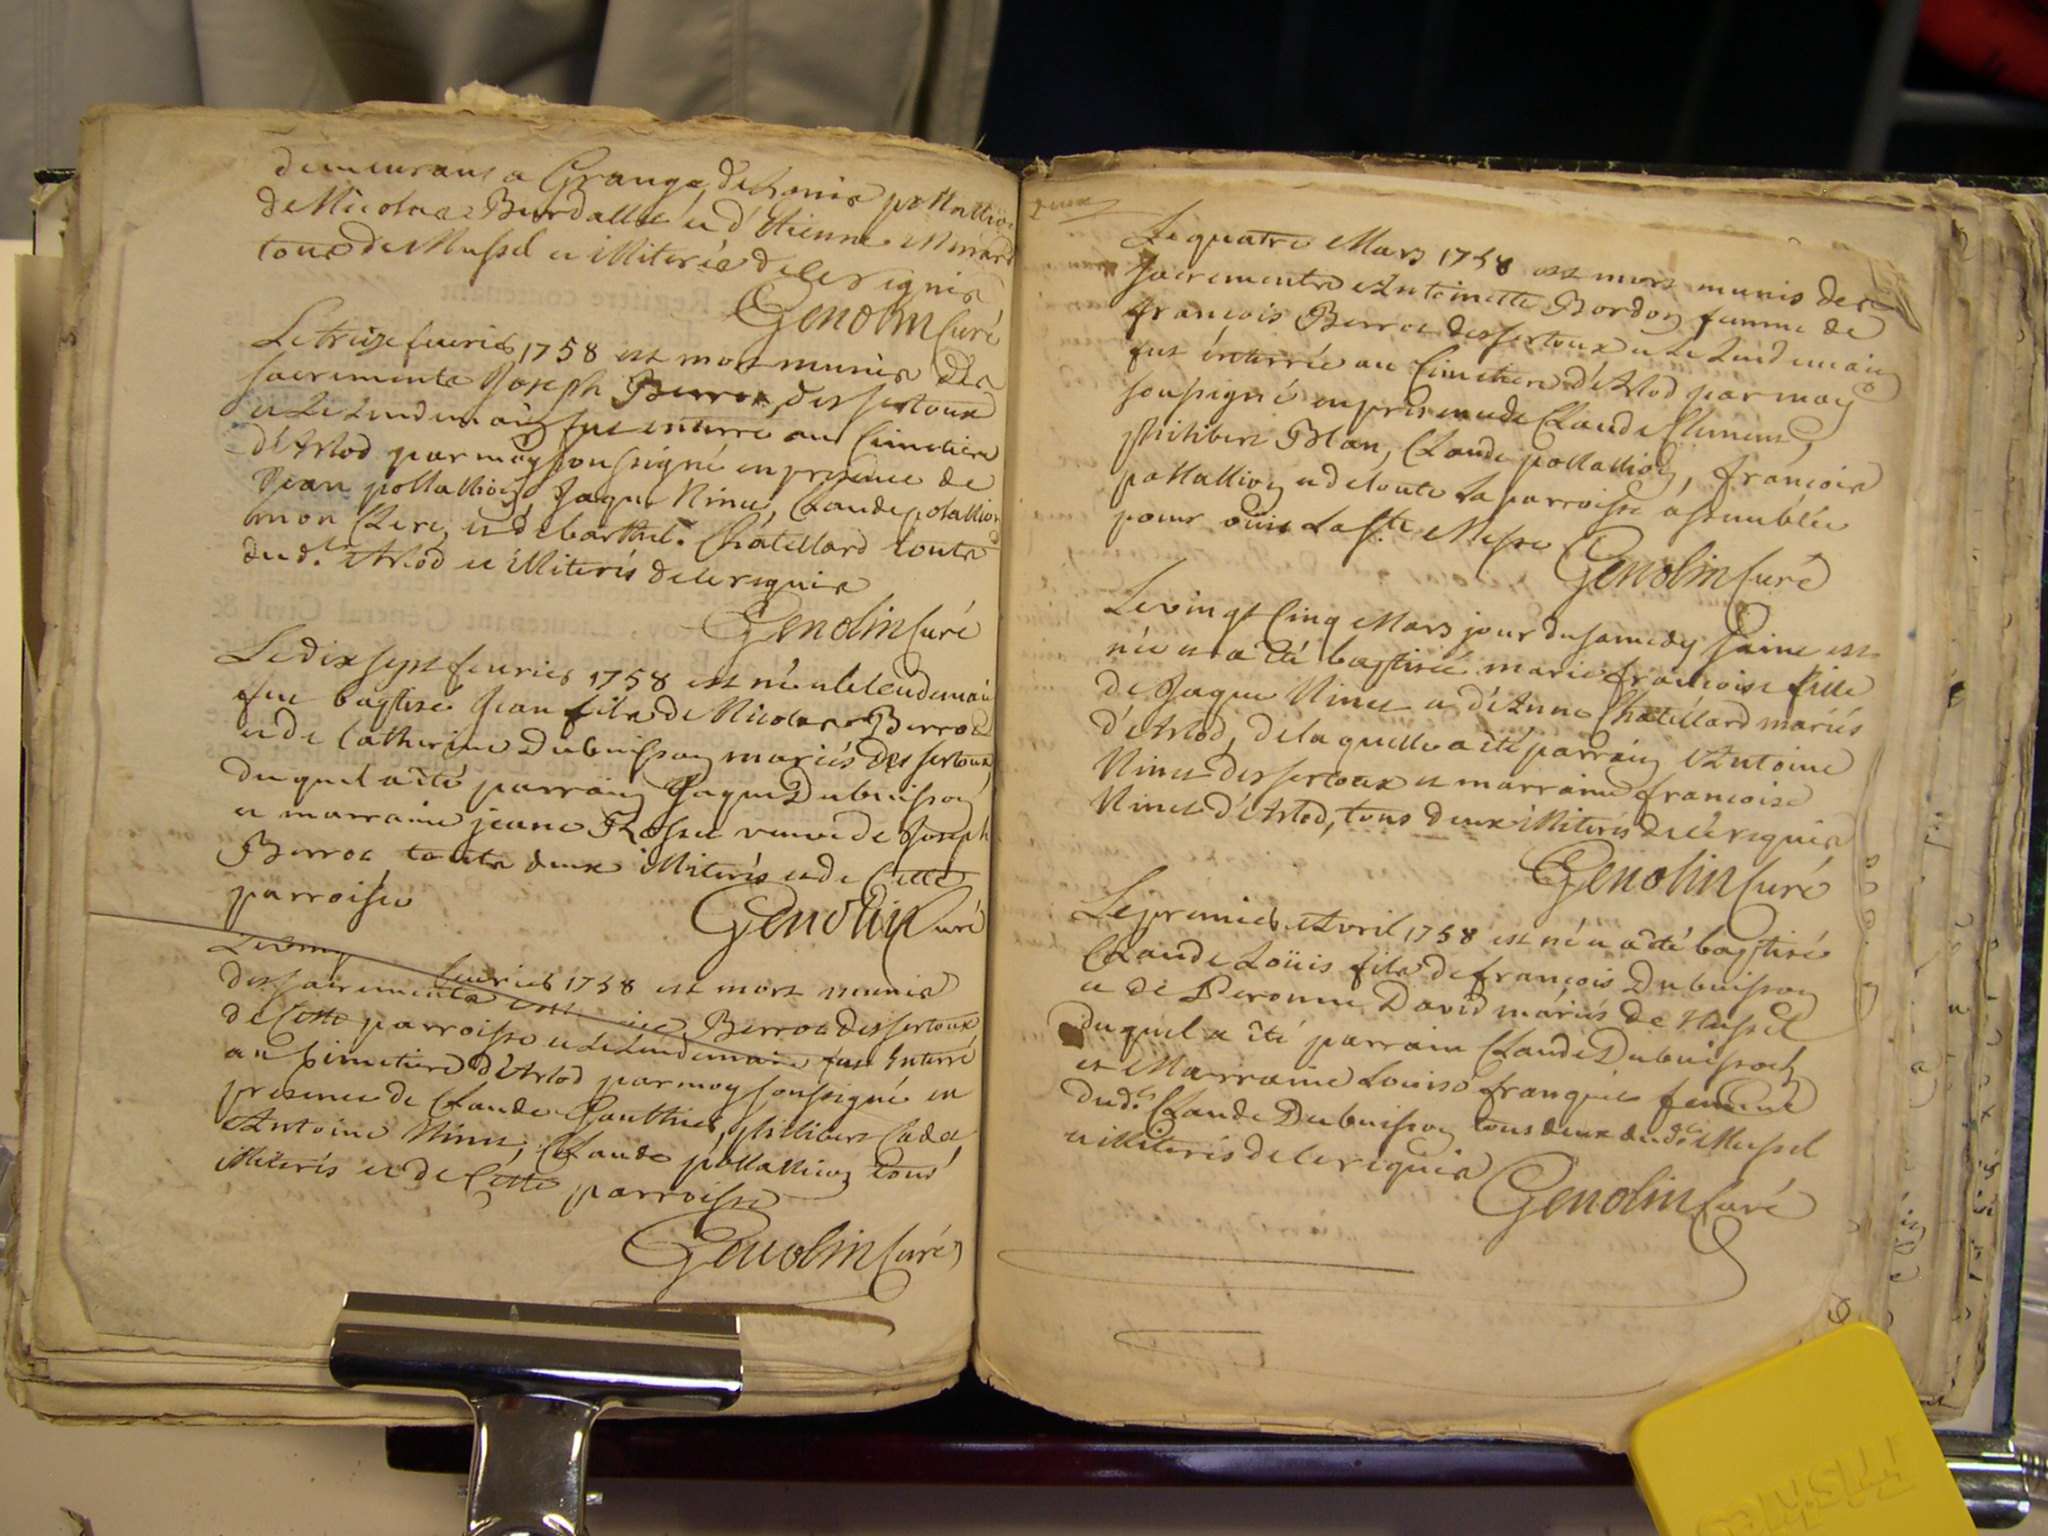 demeurans a Grange, de Louis pollallion
de Nicolas Burdallet et d'Etienne Minard
tous de Mussel et illiterés de ce requis
Genolin Curé
Le treize feurier 1758 est mort munis des
sacrements Joseph Berroc des sertoux
et Le Lendemain fut enterré au Cimetiere
d'Arlod par moy soussigné en presence de
Jean pollallion, Jaque Ninet, Claude polallion
mon Clerc, et de barthel. Châtellard toutes
dud. Arlod et illiterés de ce requis
Genolin Curé
Le dix sept feurier 1758 est né et le lendemain
fut baptisé Jean fils de Nicolas Berroc
et de Catherine Dubuisson mariés des sertoux,
du quel a été parrain Jaque Dubuisson
et marraine jeane Rosset veuve de Joseph
Berroc toute deux illiterés et de Cette
parroisse
Genolin Curé
Le vingt feurier 1758 est mort munis
des sacrements Berroc des sertoux
de Cette parroisse et Le Lendemain fut Interré
au Cimetiere d'Arlod par moy soussigné en
presence de Claude Gauthier, phillibert Cadet,
Antoine Ninet, Claude pollallion tous
illiterés et de Cette parroisse
Genolin Curé
Le quatre Mars 1758 est mors munis des
sacrements Antoinette Bordon femme de
françois Berroc des sertoux et Le Lendemain
fut énterrée au Cimetiere d'Arlod par moy
soussigné en presence de Claude Clement,
philibert Blan, Claude pollallion, françois
pollallion et de toute La parroisse ássemblée
pour oüir La Ste Messe
Genolin Curé
Le vingt Cinq Mars jour du samedy saint est
née et a été baptisée marie françoise fille
de Jaque Ninet et d'Anne Chatéllard mariés
d'Arlod, de la quelle a été parrain Antoine
Ninet des sertoux et marraine françoise
Ninet d'Arlod, tous deux illiterés de ce requis
Genolin Curé
Le premier Avril 1758 est né et a été baptisé
Claude Loüis fils de françois Dubuisson
et de Peronne David mariés de Mussel
du quel a été parrain Claude Dubuisson
et Marraine Louise franquet femme
dud. Claude Dubuisson tous deux dud. Mussel
et illiterés de ce requis
Genolin Curé